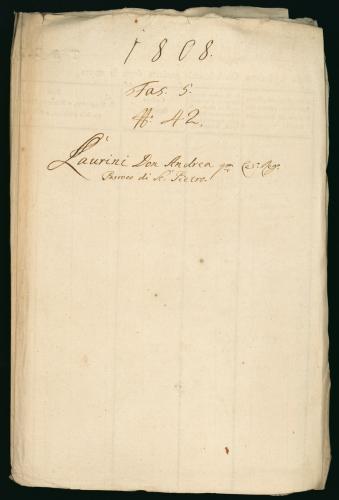 1808.
Fas. 5.
N. 42.
Laurini Don Andrea qm Ces. Reg.
Parroco di S. Pietro.